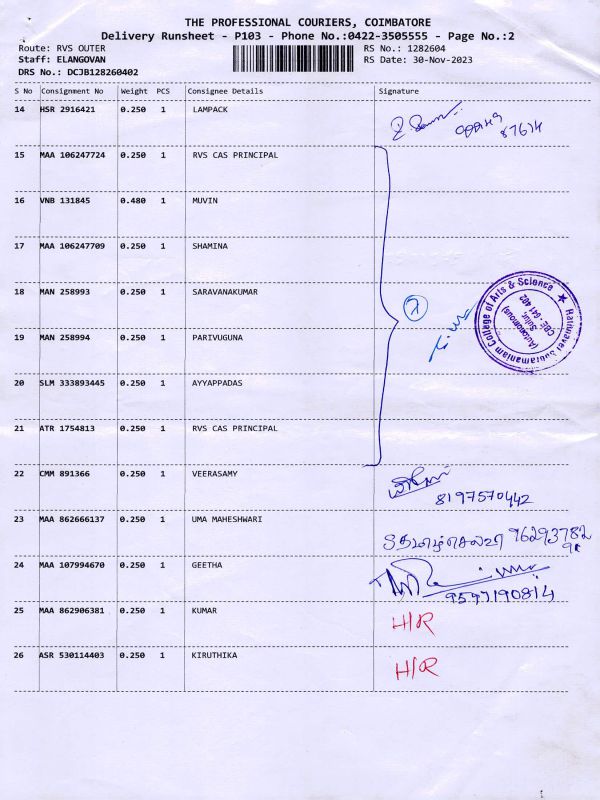 THE PROFESSIONAL COURIERS, COIMBATORE
Delivery Runsheet - P103 - Phone No.:0422-3505555 - Page No.:2
Route: RVS OUTER RS No.: 1282604
Staff: ELANGOVAN RS Date: 30-Nov-2023
DRS No.: DCJB128260402
S No Consignment No Weight PCS Consignee Details Signature
14 HSR 2916421 0.250 1 LAMPACK
87674
15 MAA 106247724 0.250 1 RVS CAS PRINCIPAL
16 VNB 131845 0.480 1 MUVIN
17 MAA 106247709 0.250 1 SHAMINA
18 MAN 258993 0.250 1 SARAVANAKUMAR
7
Rathnavel Subramaniam College of Arts & Science
(Autonomous)
Sulur,
CBE - 641 402
19 MAN 258994 0.250 1 PARIVUGUNA
20 SLM 333893445 0.250 1 AYYAPPADAS
21 ATR 1754813 0.250 1 RVS CAS PRINCIPAL
22 CMM 891366 0.250 1 VEERASAMY
8197570442
23 MAA 862666137 0.250 1 UMA MAHESHWARI
96293782
24 MAA 107994670 0.250 1 GEETHA
9597190814
25 MAA 862906381 0.250 1 KUMAR H/R
26 ASR 530114403 0.250 1 KIRUTHIKA H/R